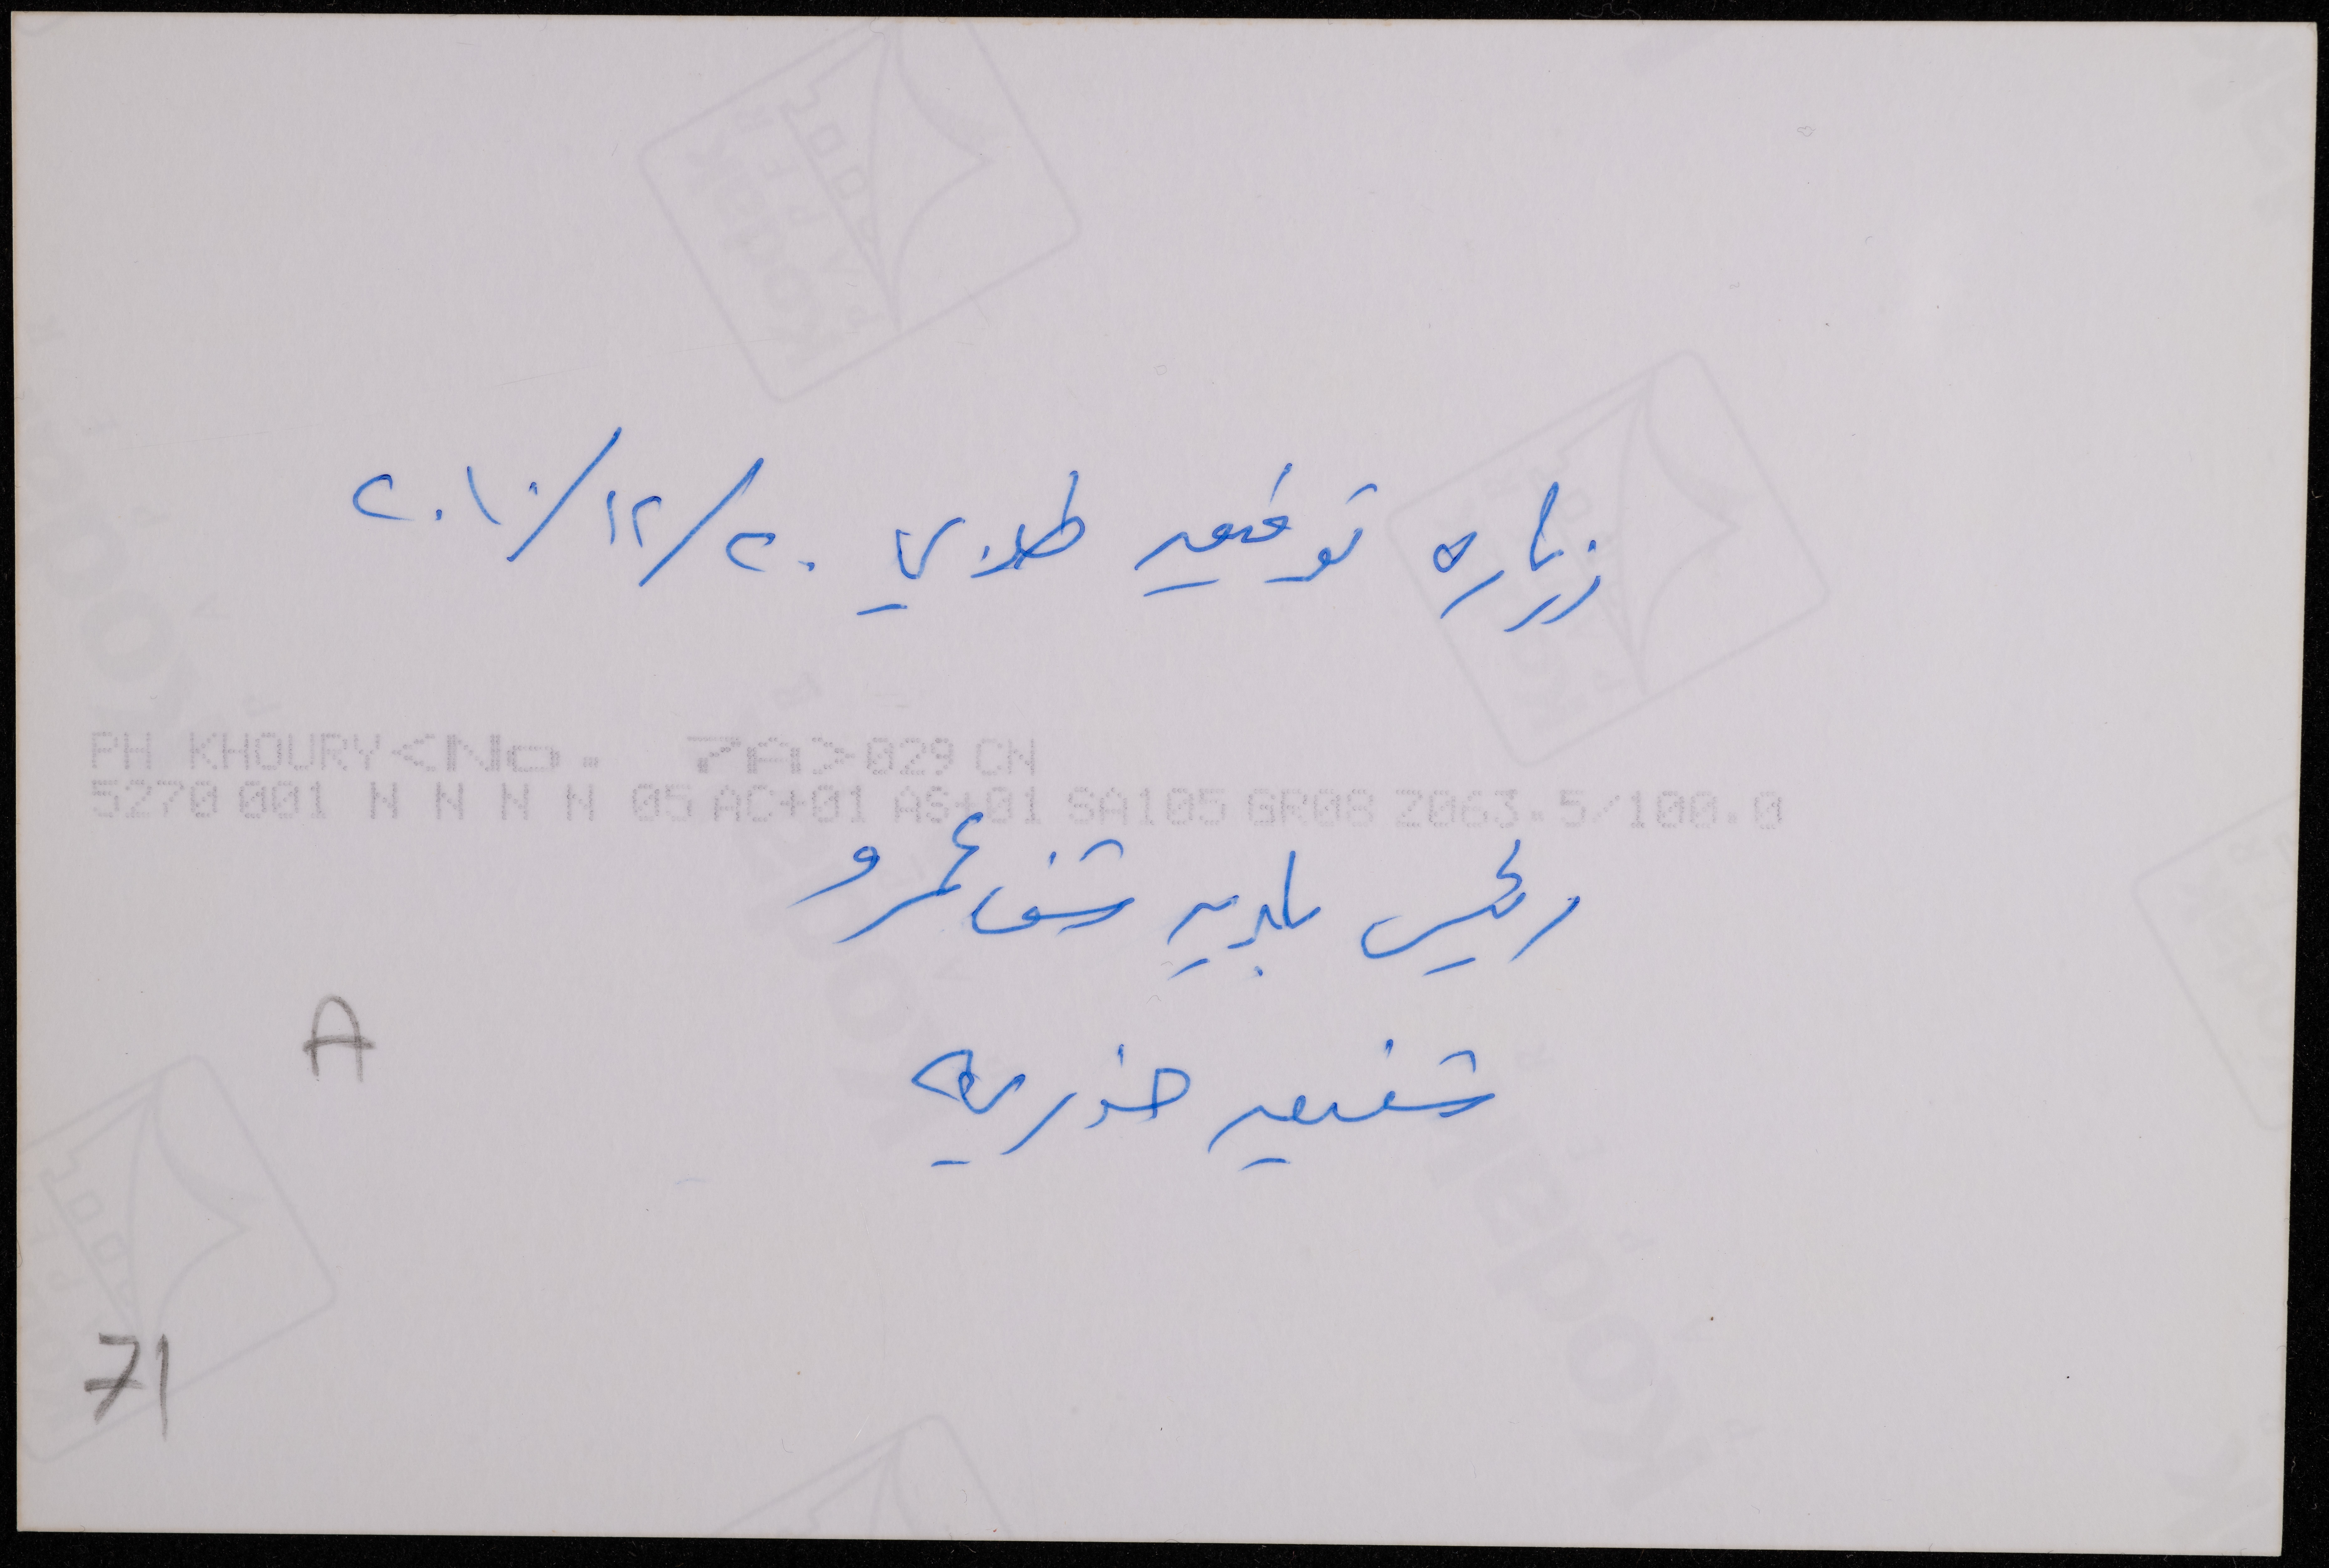 زياره توفيق طوبي ٢٠/١٢/٢٠١٠
PH KHOURY<No. 7A>029 CN
5270 001 N N N N 05 AC+01 AS+01 SA105 GR08 Z063.5/100.0
رئيس بلديه شفاعمرو
A
شفيق خوريه
71